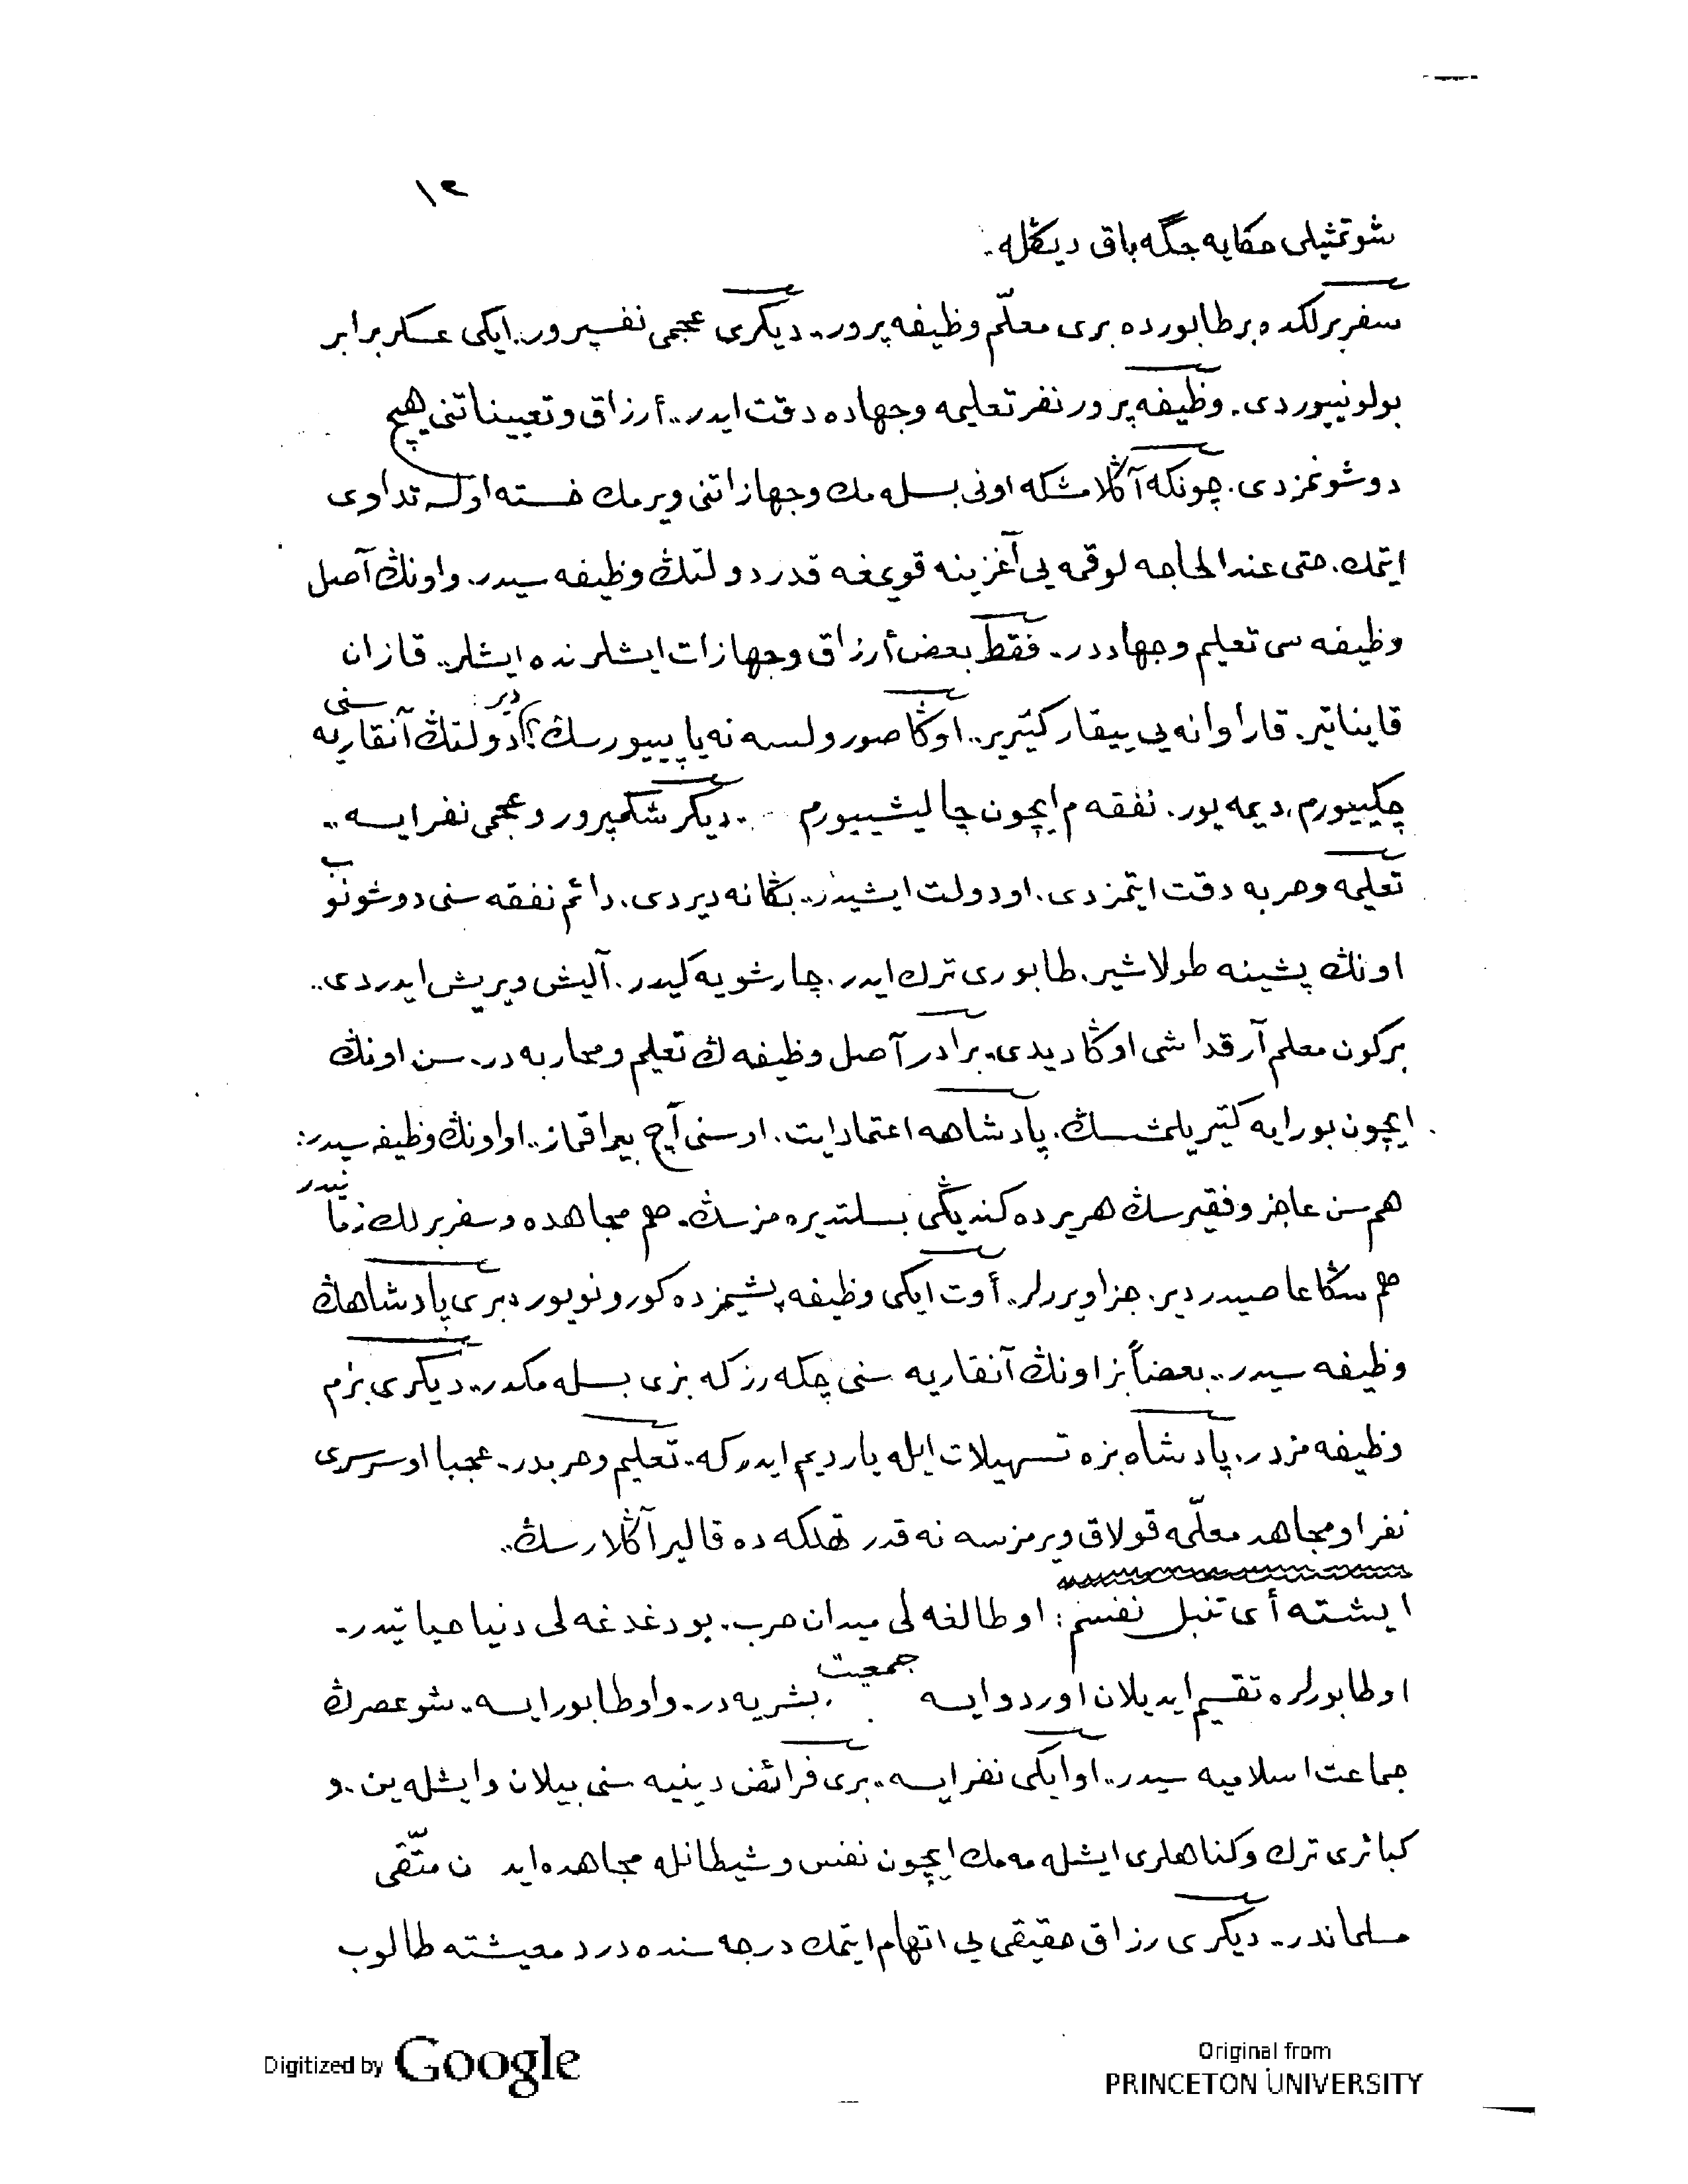 ١٢
شو تمثیلی حكایه جگه باق دیڭله.
سفربرلكده بر طابورده بری معلّم وظیفه‌پرور.. دیگری عجمی نفسپرور.. ایكی عسكر برابر
بولونیوردی. وظیفه‌پرور نفر تعلیمه وجهاده دقت ایدر.. أرزاق وتعییناتنی هیچ
دوشونمزدی. چونكه آڭلامشكه اونی بسله‌مك وجهازاتنی ویرمك خسته اولسه تداوی
ایتمك. حتی عندالحاجه لوقمه‌یی آغزینه قویمغه قدر دولتڭ وظیفه‌سیدر. واونڭ آصل
وظیفه‌سی تعلیم وجهاددر. فقط بعض أرزاق وجهازات ایشلرنده ایشلر.. قازان
قایناتیر. قاراوانه‌یی ییقار كتیریر.. اوڭا صورولسه نه یاپییورسڭ؟ دیر: دولتڭ آنقاریه سنی
چكییورم، دیمه‌یور. نفقه‌م ایچون چالیشییورم .. دیگر شكمپرور وعجمی نفر ایسه ..
تعلیمه وحربه دقت ایتمزدی. او دولت ایشیدر.. بڭا نه دیردی. دائم نفقه‌سنی دوشونوب
اونڭ پشینه طولاشیر. طابوری ترك ایدر. چارشویه كیدر. آلیش ویریش ایدردی..
بركون معلم آرقداشی اوڭا دیدی. برادر آصل وظیفه‌ڭ تعلیم ومحاربه‌در. سن اونڭ
ایچون بورایه كتیریلمشسڭ. پادشاهه اعتماد ایت. او سنی آچ بیراقماز.. او اونڭ وظیفه‌سیدر:
هم سن عاجز وفقیرسڭ هریرده كندیڭی بسلتدیره‌مزسڭ. هم مجاهده وسفربرلك زمانیدر
هم سڭا عاصیدر دیر. جزا ویررلر.. أوت ایكی وظیفه پشیمزده كورونویور بری پادشاهڭ
وظیفه‌سیدر.. بعضاً بز اونڭ آنقاریه‌سنی چكه‌رز كه بزی بسله‌مكدر.. دیگری بزم
وظیفه‌مزدر. پادشاه بزه تسهیلات ایله یاردیم ایدر كه. تعلیم وحربدر. عجبا او سرسری
نفر او مجاهد معلّمه قولاق ویرمزسه نه قدر تهلكه‌ده قالیر آڭلارسڭ..
ایشته أی تنبل نفسم: او طالغه‌لی میدان حرب. بو دغدغه‌لی دنیا حیاتیدر.
او طابورلره تقسیم ایدیلان اوردو ایسه جمعیت بشریه‌در. واو طابور ایسه. شو عصرڭ
جماعت اسلامیه‌سیدر.. او ایكی نفر ایسه. بری فرائض دینیه‌سنی بیلان وایشله‌ین. و
كبائری ترك وكناهلری ایشله‌مه‌مك ایچون نفس وشیطانله مجاهده اید ن متّقی
مسلماندر.. دیگری رزاق حقیقی‌یی اتهام ایتمك درجه‌سنده درد معیشته طالوب
Digitized by Google
Original from
PRINCETON UNIVERSITY